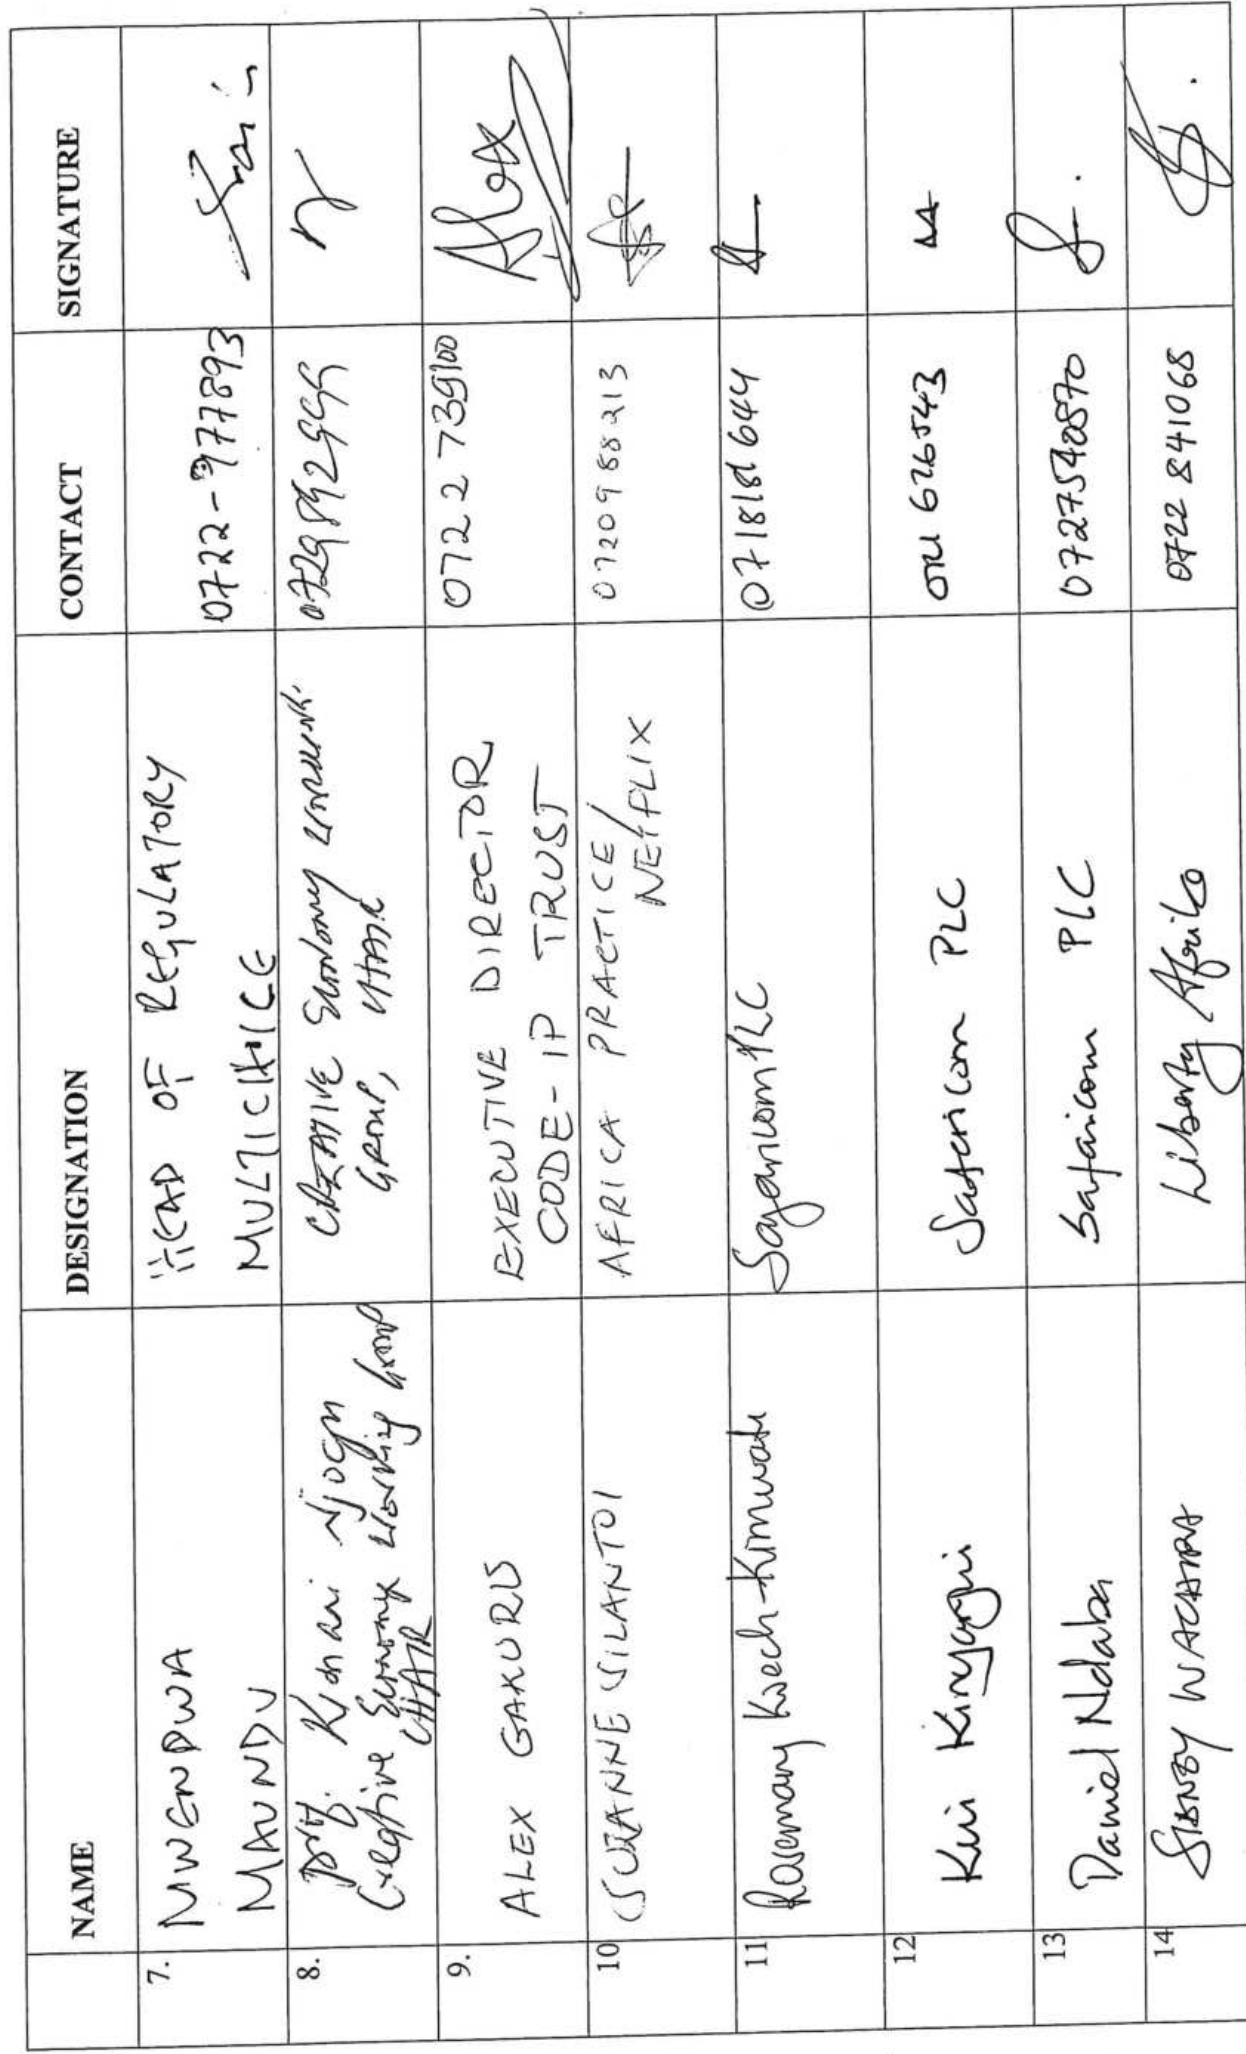 NAME DESIGNATION CONTACT SIGNATURE
7. MWENDWA HEAD OF REGULATORY
MAUNDU MULTICHOICE 0722-977893
8. Prof. Kimani Njogu CREATIVE Economy WORKING
Creative Economy Working Group GROUP, CHAIR
CHAIR
9. ALEX GAKURU EXECUTIVE DIRECTOR 0722 739100 Alex
CODE-IP TRUST
10 SUZANNE SILANTOI AFRICA PRACTICE/ 0720988213
NETFLIX
11 Rosemary Koech-Kimwatu Safaricom PLC
12 Kui Kinyanjui Safaricom PLC 0721 626543
13 Daniel Ndaba Safaricom PLC 0727540570
14 SIDNEY WACHIRA Liberty Afrika 0722 841068